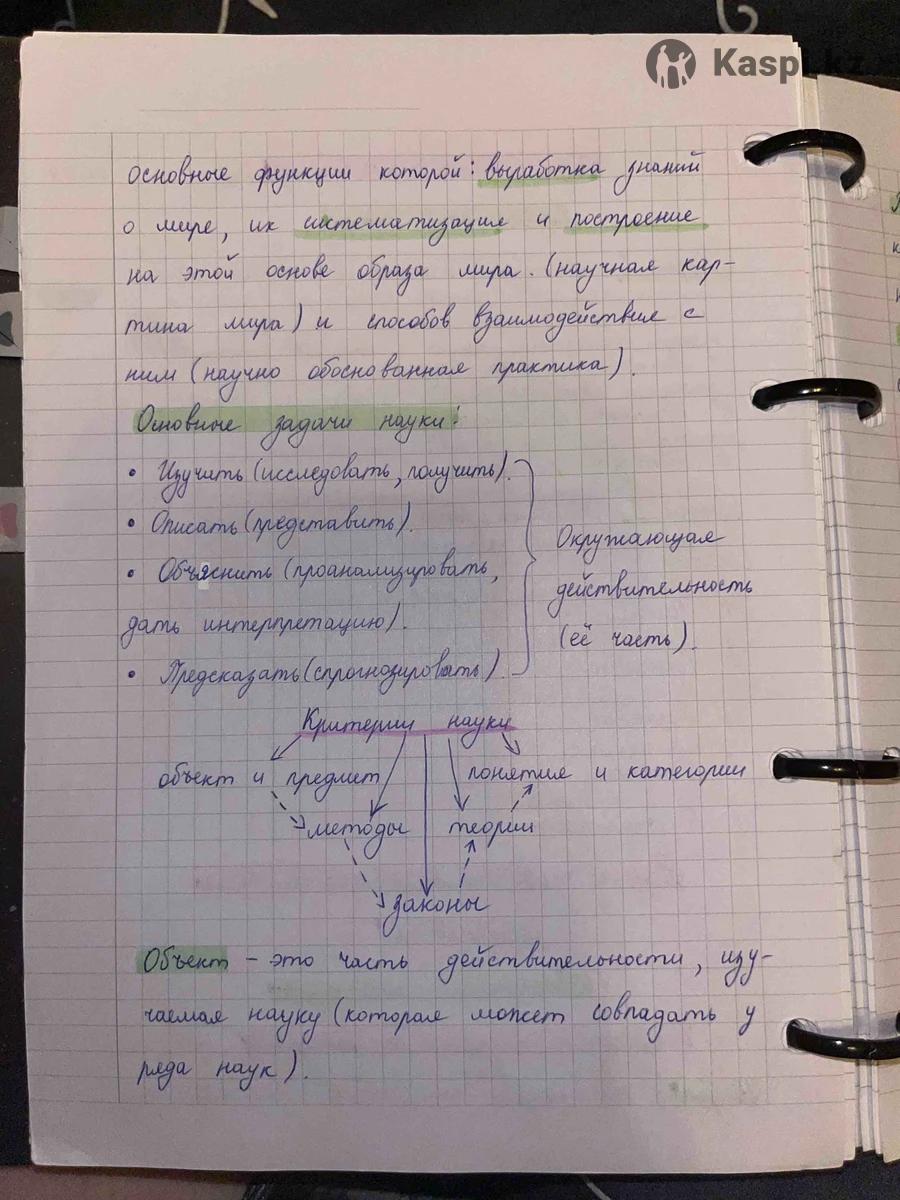 Kaspi.kz
основные функции которой: выработка знаний
о мире, их систематизация и построение
на этой основе образа мира. (научная кар-
тина мира) и способов взаимодействия с
ним (научно обоснованная практика).
Основные задачи науки:
• Изучить (исследовать, получить).
• Описать (представить).
• Объяснить (проанализировать,
дать интерпретацию).
• Предсказать (спрогнозировать).
Окружающая
действительность
(её часть).
Критерии науки
объект и предмет
понятия и категории
методы
теории
законы
Объект – это часть действительности, изу-
чаемая науку (которая может совпадать у
ряда наук).